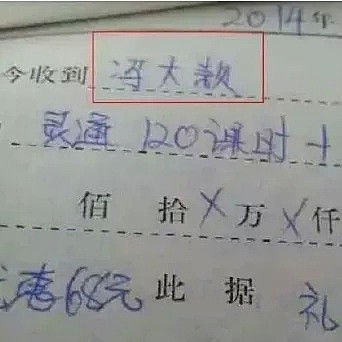 2014年
今收到 冯大款
灵通 120课时 +
佰 拾 X 万 X 仟
惠68元 此 据 礼